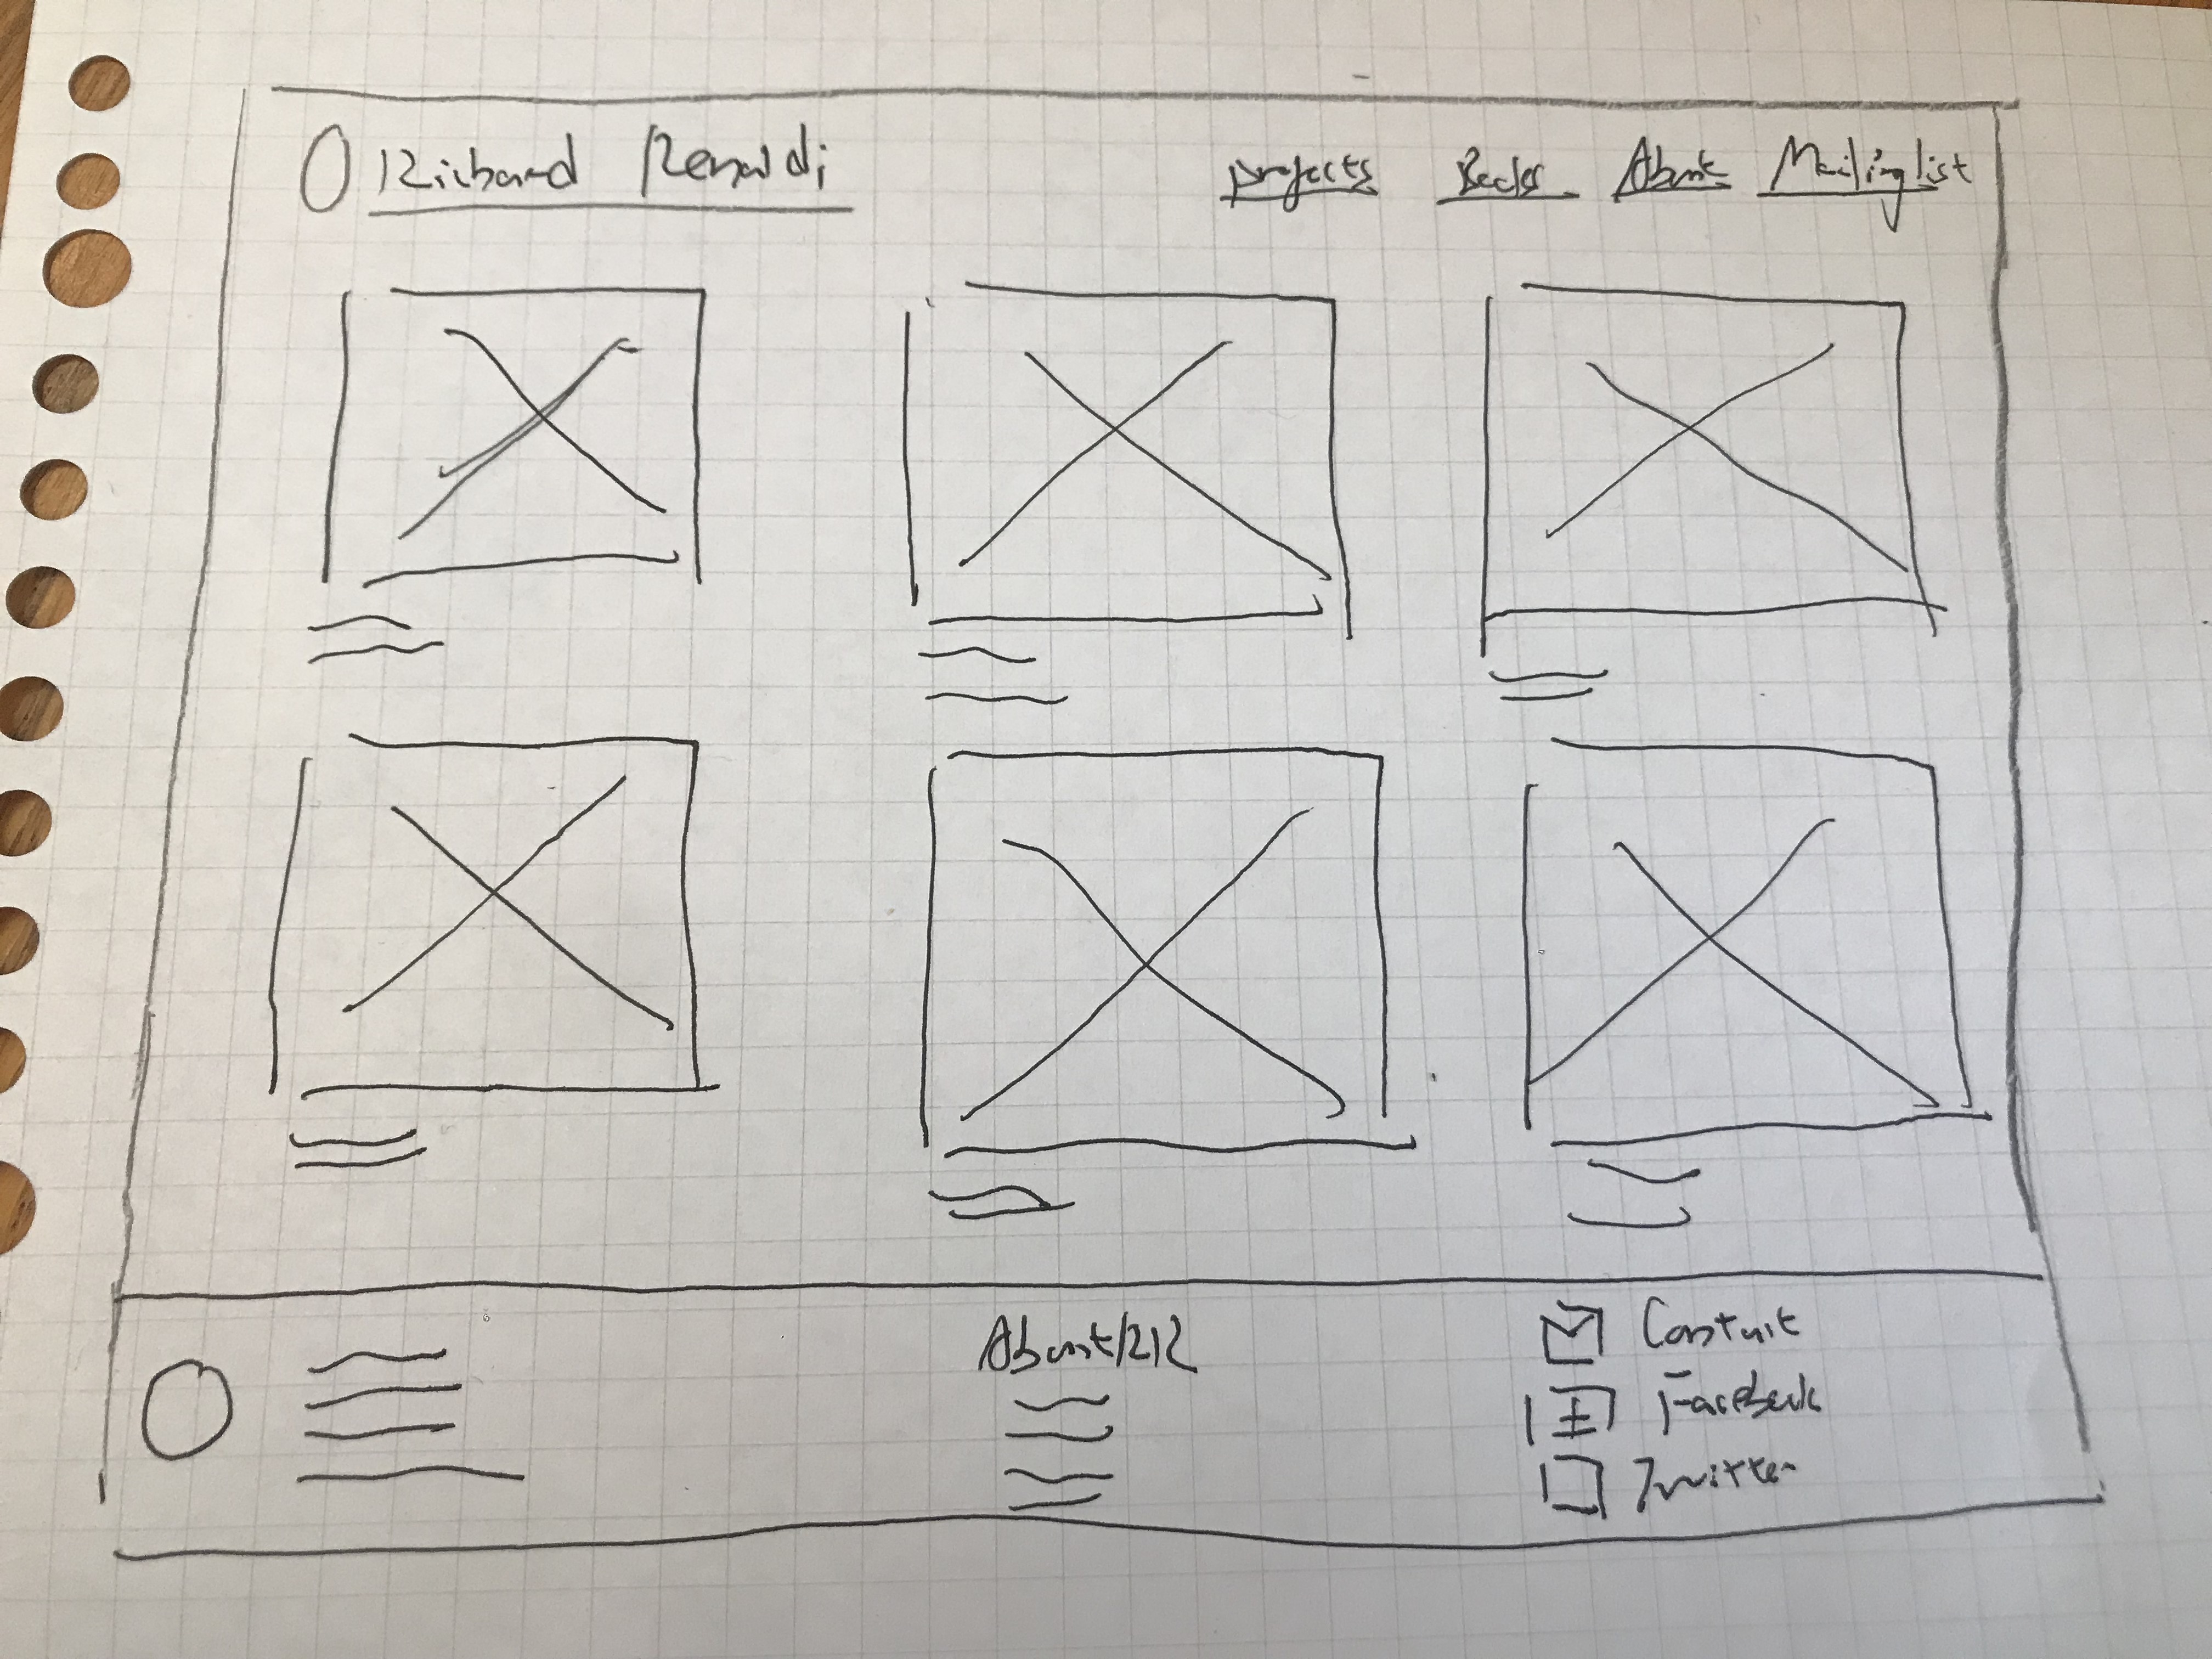 Richard Renaldi
projects Books About Mailing list
About/212
Contact
Facebook
Twitter